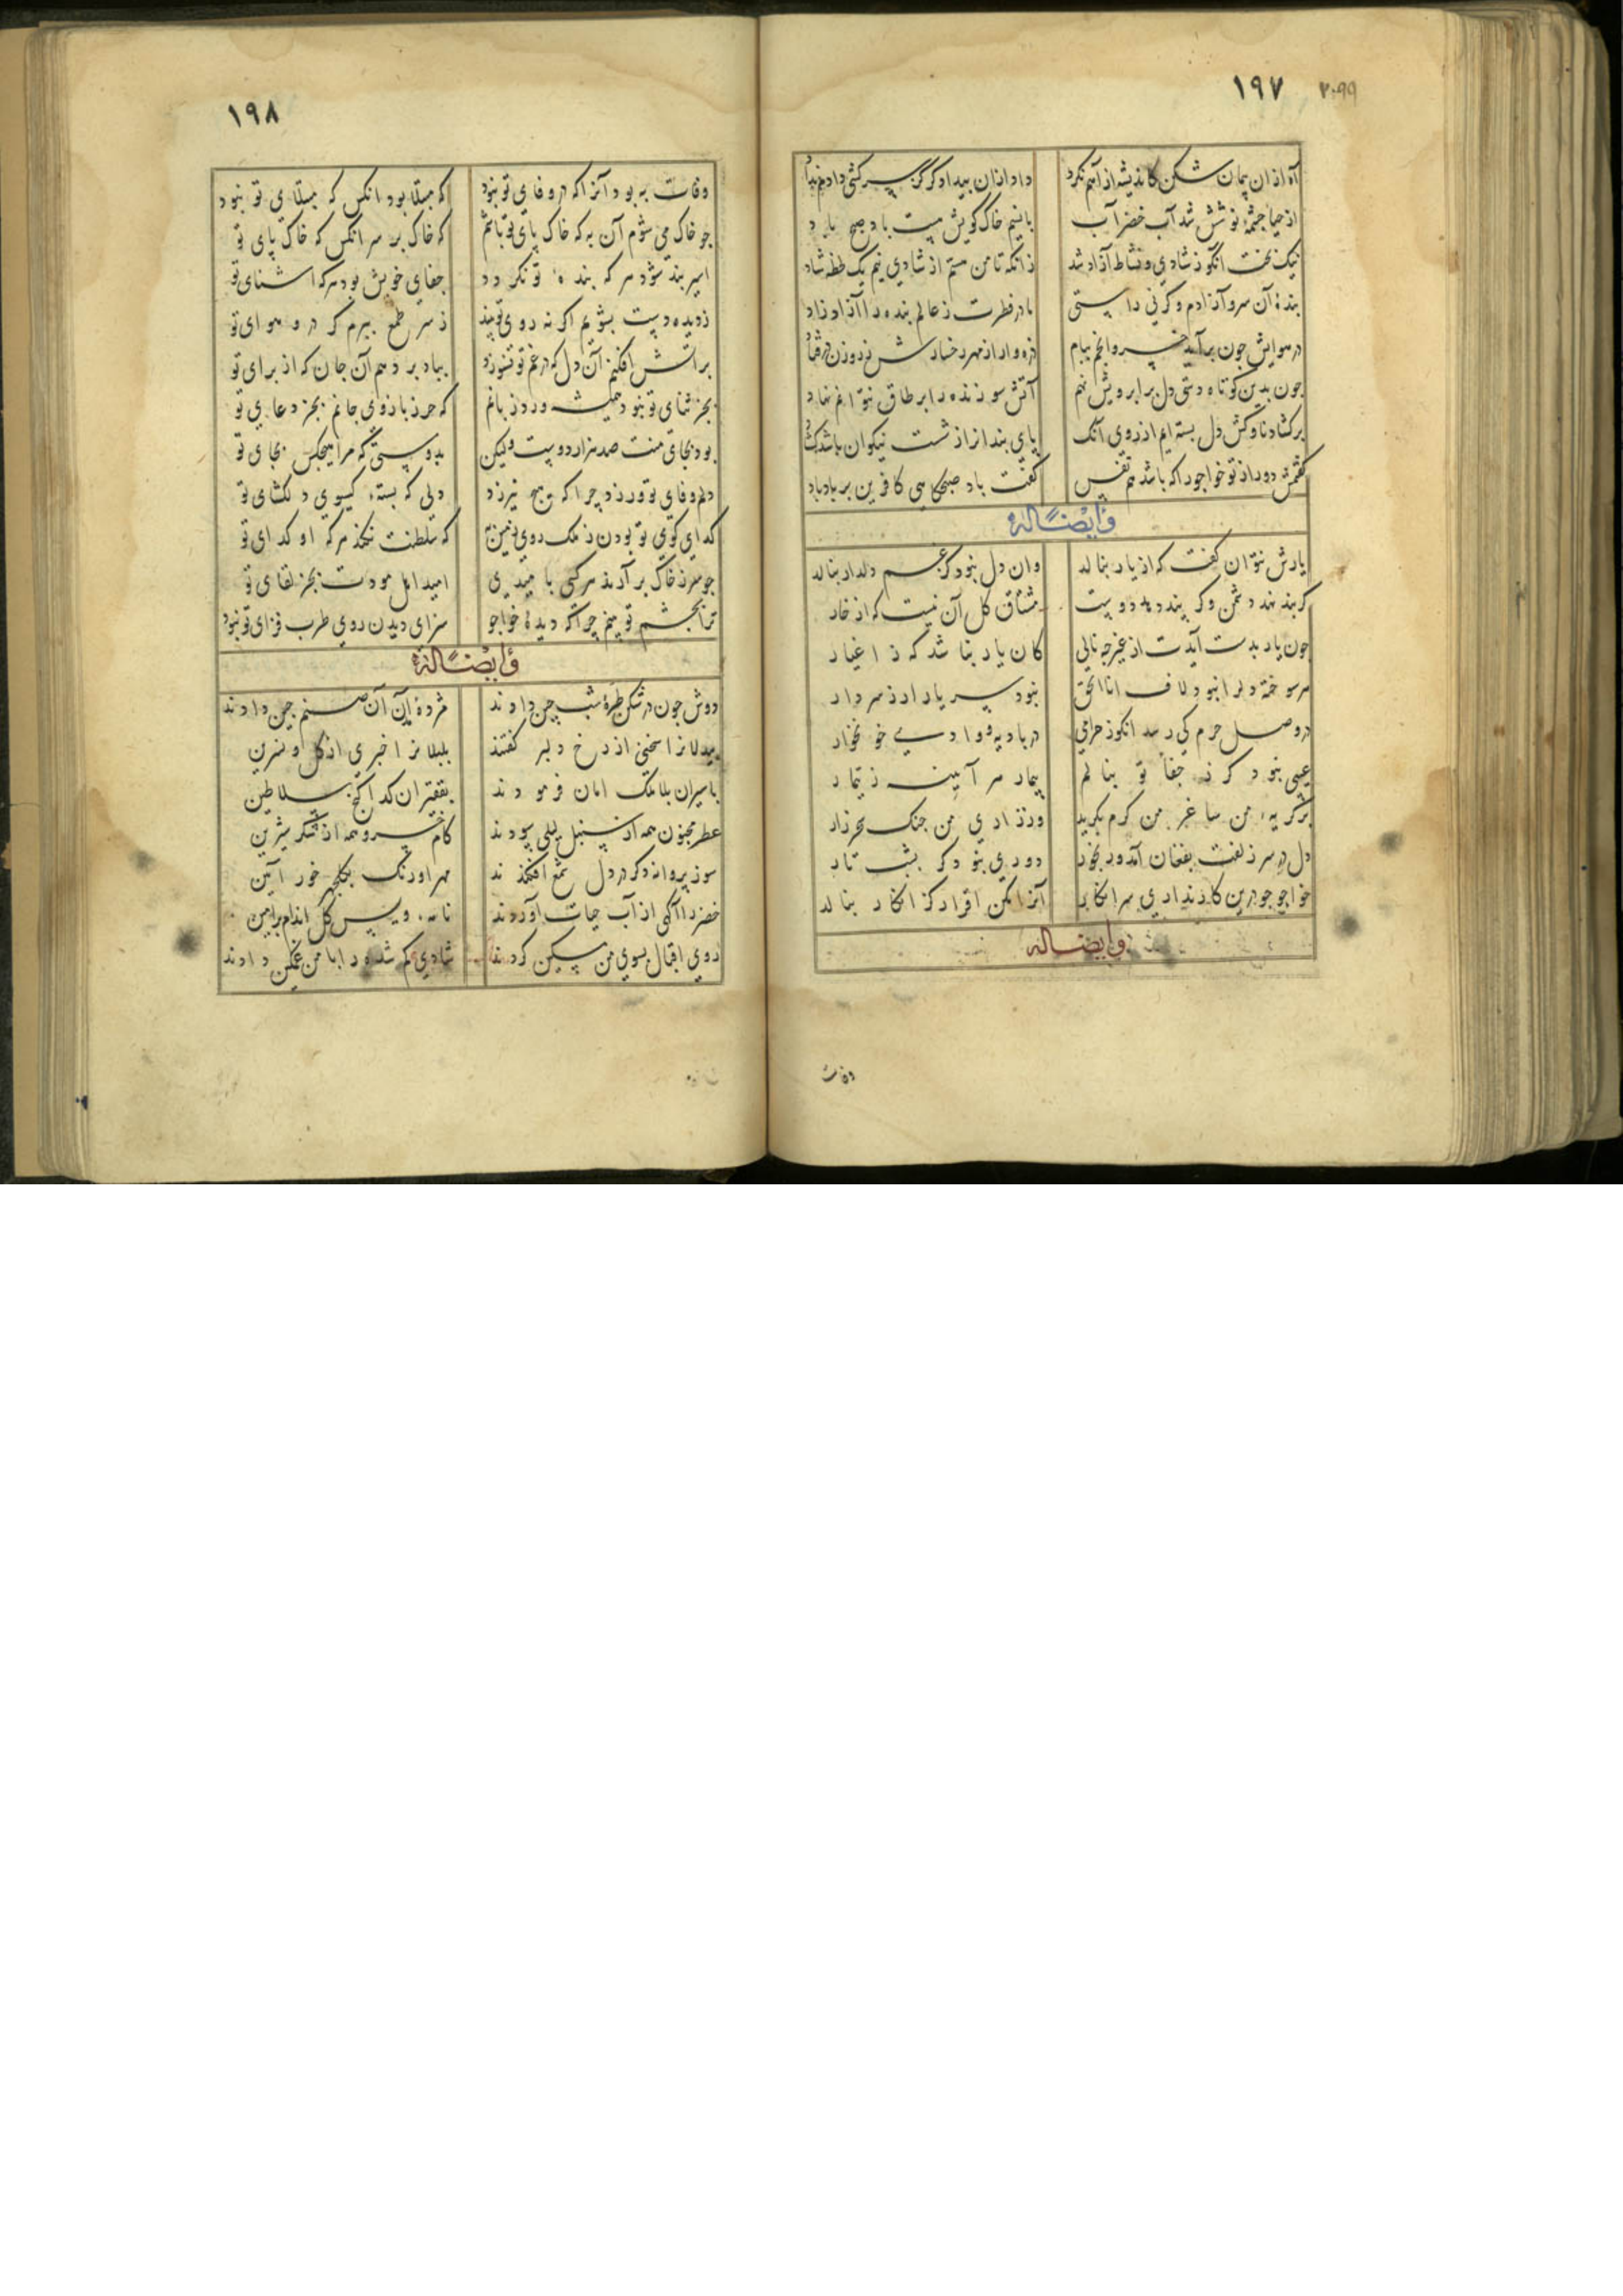 ۱۹۷
۲۰۹۹
آه ازان پیمان شکن کاندیشه از آهم نکرد داد ازان بیدادگر کز سرکشی دادم نداد
از حیا چشمهٔ نوشش شد آب خضر آب با نسیم خاک کویش هست باد صبح باد
نیک بخت آنکو ز شادی و نشاط آزاد شد زانکه تا من هستم از شادی نیم یک لحظه شاد
بندهٔ آن سرو آزادم وگرنی راستی مادر فطرت ز عالم بنده را آزاد زاد
در هوایش چون برآمد خسرو انجم ببام ذره وار از مهر رخسارش ز روزن درفتاد
چون بدین کوتاه دستی دل بر ابرویش نهم آتش سوزنده را بر طاق نتوانم نهاد
برگشاد ناوکش دل بسته‌ایم از روی آنک پای بند انرا ز شست نیکوان باشد گشاد
گفتمش دور از تو خواجو را که باشد هم نفس گفت باد صبحگاهی کافرین بر باد باد
وایضاً له
یارش نتوان گفت که از یار بنالد وان دل نبود کز غم دلدار بنالد
گر بند نهد دشمن وگر پند دهد دوست مشتاق گل آن نیست که از خار
چون یار بدست آیدت از غیر چه نالی کان یار نباشد که ز اغیار
هر سوخته دلرا نبود لاف انا الحق نبود سر یار ار ز سر دار
در وصل حرم کی رسد آنکو ز حرامی در بادیه و وادی خونخوار
عیبی نبود گر ز جفا تو بنالم بیمار هر آینه ز تیمار
بر گریه من ساغر من گرم بگرید وز زاری من چنگ سحر زار
دل در سر زلفت بفغان آمد و رنجور دوری نبود گر بشب تار
خواجو چو درین کار نداری سر انکار آنرا مکن اقرار کز انکار بنالد
وایضاً له
وفات
۱۹۸
وفات به بود آنرا که در وفای تو نبود که مبتلا بود آنکس که مبتلای تو نبود
چو خاک می شوم آن به که خاک پای تو باشم که خاک بر سر آنکس که خاک پای تو
اسیر بند شود هر که بندهٔ تو نگردد جفای خویش بود هرکه آشنای تو
ز دیده دست بشویم اگر نه روی تو بیند ز سر طمع ببرم گر در و هوای تو
بر آتش افکنم آن دل که در غم تو نسوزد بباد بر دهم آن جان که از برای تو
بجز ثنای تو نبود همیشه ورد زبانم که حرز بازوی جانم بجز دعای تو
بود بجای منت صد هزار دوست ولیکن بدوستی که مرا هیچکس بجای تو
دلم وفای تو ورزد چرا که هیچ نیرزد دلی که بستهٔ گیسوی دلگشای تو
گدای کوی تو بودن ز ملک روی زمین به که سلطنت نکند هرکه او گدای تو
چو سر ز خاک بر آرند هر کسی بامیدی امید اهل مودت بجز لقای تو
ترا بچشم تو بینم چرا که دیدهٔ خواجو سزای دیدن روی طرب فزای تو نبود
وایضاً له
دوش چون در شکن طرهٔ شب چین دادند مژدهٔ آمدن آن صنم چین دادند
بیدلانرا سخنی از رخ دلبر گفتند بلبلانرا خبری از گل و نسرین
باسیران بلا ملک امان فرمودند بفقیران گدا گنج سلاطین
عطر مجنون همه از سنبل لیلی سودند کام خسرو همه از شکر شیرین
سوز پروانه دگر در دل شمع افکندند مهر اورنگ بگلچهر خور آیین
خضر را آگهی از آب حیات آوردند نامهٔ ویس گل اندام برامین
روی اقبال بسوی من مسکین کردند شادی گم شده را با من غمگین دادند